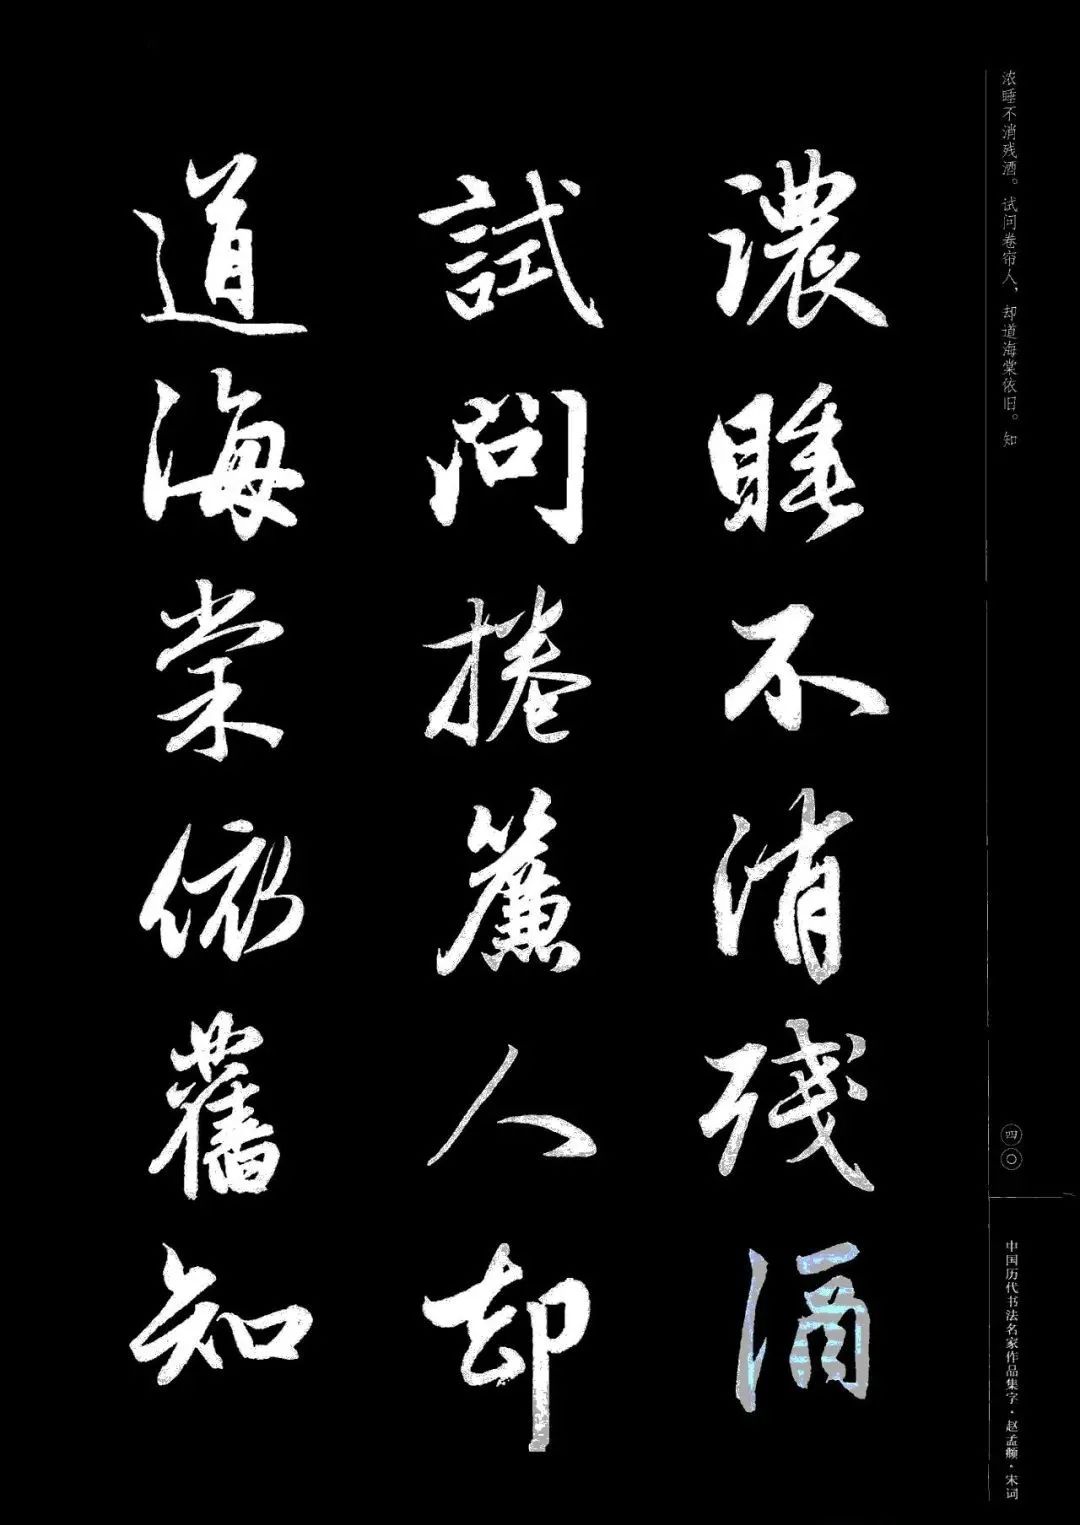 浓睡不消残酒。试问卷帘人，却道海棠依旧。知
四〇
中国历代书法名家作品集字·赵孟頫·宋词
濃睡不消殘酒
試問捲簾人却
道海棠依舊知